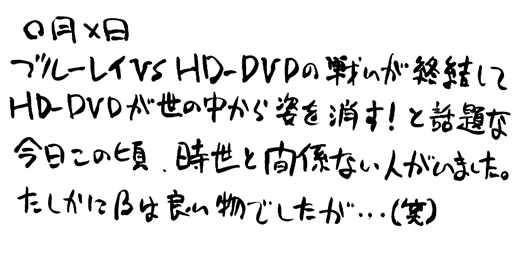 ○月×日
ブルーレイVS HD-DVDの戦いが終結して
HD-DVDが世の中から姿を消す!と話題な
今日この頃、時世と関係ない人がいました。
たしかにβは良い物でしたが…(笑)